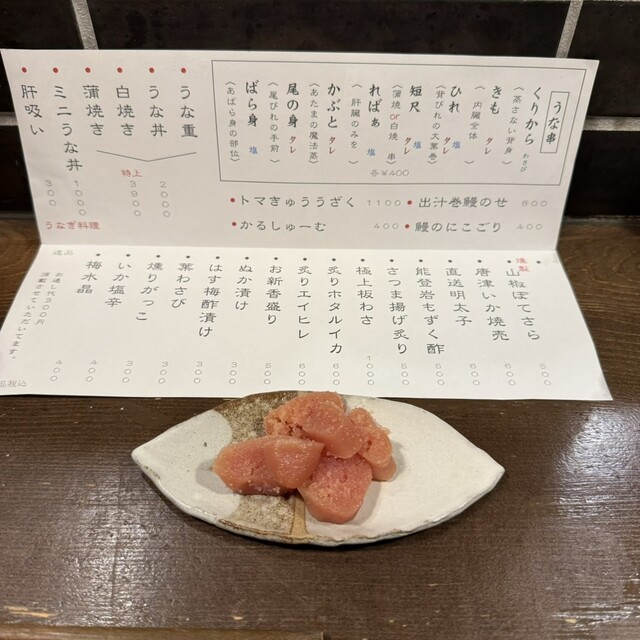 うな串
くりから わさび
(高さない背身)
きも タレ
(内臓全体)
ひれ タレ 塩
(背びれの大葉巻)
短尺 タレ 塩
(蒲焼 or 白焼 串)
ればぁ 塩
(肝臓のみを)
かぶと タレ
(あたまの魔法蒸)
尾の身 タレ
(尾びれの手前)
ばら身 塩
(あばら身の部位)
各¥400
うな重
うな丼
白焼き
蒲焼き
ミニうな丼
肝吸い
2000
特上 3900
1000
300
うなぎ料理
トマきゅううざく 1100
出汁巻鰻のせ 800
かるしゅーむ 400
鰻のにこごり 400
燻製
山椒ぽてさら 500
唐津いか焼売 600
直送明太子 600
能登岩もずく酢 500
さつま揚げ炙り 500
極上板わさ 1000
炙りホタルイカ 600
炙りエイヒレ 600
お新香盛り 500
ぬか漬け 300
はす梅酢漬け 300
葉わさび 300
燻りがっこ 300
いか塩辛 400
梅水晶 400
逸品
お通し300円
頂戴させていただいてます。
品税込